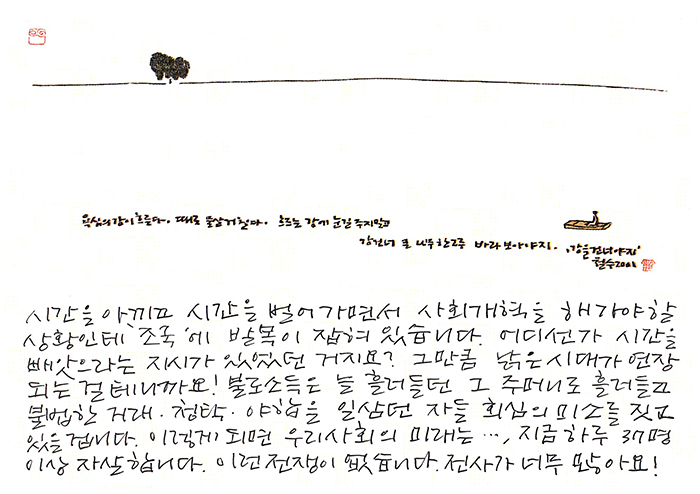 욕심의 강이 흐른다. 때로 물살 거칠다. 흐르는 강에 눈길 주지말고
강건너 큰 나무 한 그루 바라보아야지. '강을 건너야지'
철수2001
시간을 아끼고 시간을 벌어가면서 사회개혁을 해가야할
상황인데 '조국'에 발목이 잡혀 있습니다. 어디선가 시간을
빼앗으라는 지시가 있었던 거지요? 그만큼 낡은시대가 연장
되는 걸테니까요! 불로소득은 늘 흘러들던 그 주머니로 흘러들고
불법한 거래·청탁·야합을 일삼던 자들 회심의 미소를 짓고
있을겁니다. 이렇게 되면 우리사회의 미래는…, 지금 하루 37명
이상 자살합니다. 이런 전쟁이 없습니다. 전사가 너무 많아요!